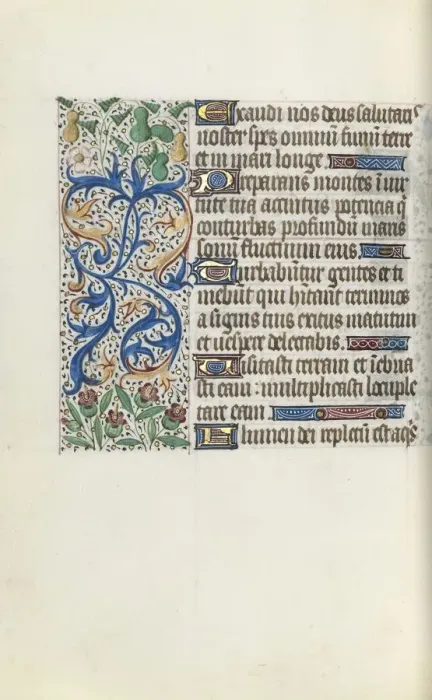 Exaudi nos deus salutaris
noster spes omniũ finiũ terre
et in mari longe
Preparans montes ĩ vir
tute tua accintus potencia q̃
conturbas profundũ maris
sonũ fluctuum eius
Turbabũtur gentes et ti
mebũt qui hĩtant terminos
a signis tuis exitus matutini
et vespere delectabis.
Visitasti terram et ĩebria
sti eam: multiplicasti locuple
tare eam
Flumen dei repletũ est aq̃s